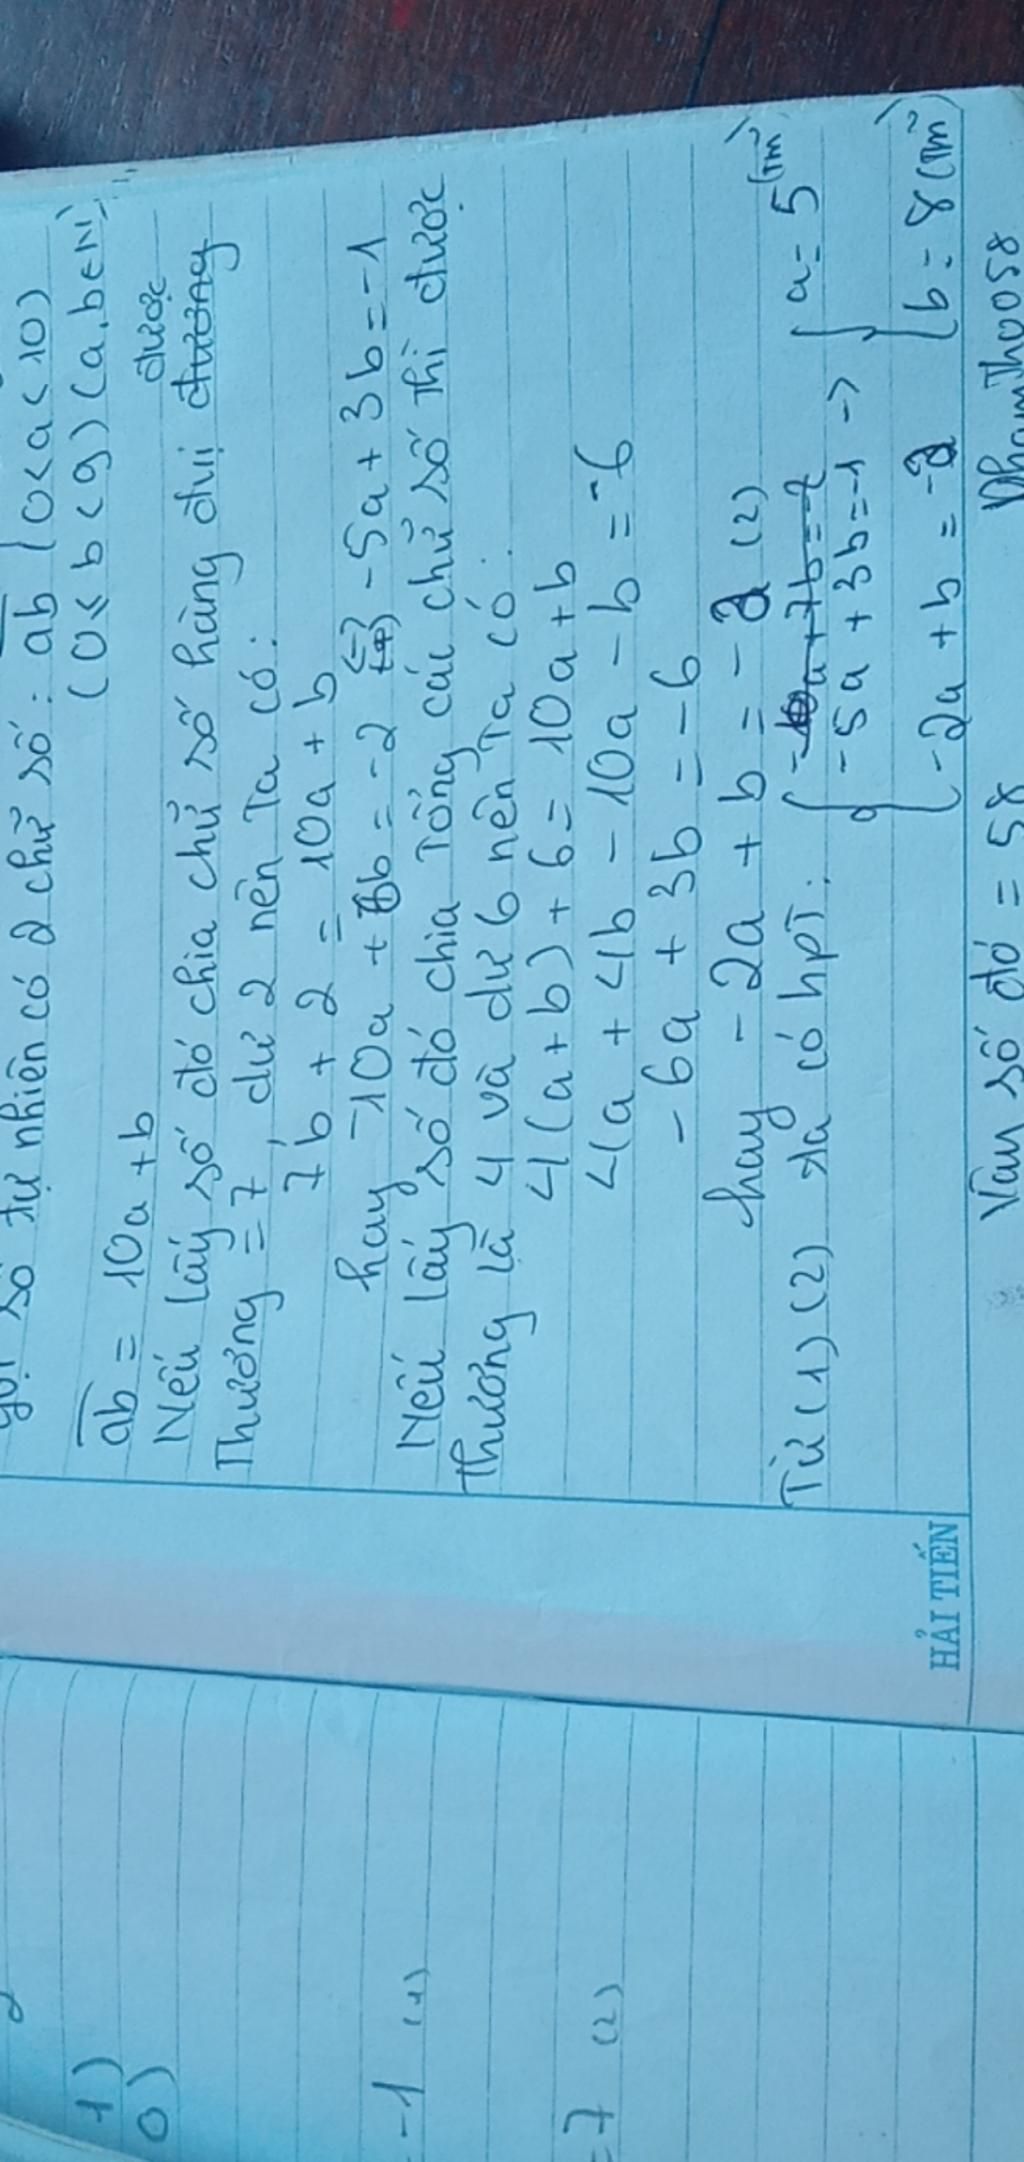 số tự nhiên có 2 chữ số: ab (0<a<10)
(0≤b<9) (a,b∈N)
ab = 10a+b
được
Nếu lấy số đó chia chữ số hàng đvị đương
Thương = 7, dư 2 nên Ta có:
7b + 2 = 10a + b
hay -10a + 6b = -2 <=> -5a + 3b = -1
Nếu lấy số đó chia Tổng các chữ số Thì được
Thương là 4 và dư 6 nên Ta có.
4(a+b) + 6 = 10a+b
4a + 4b - 10a - b = -6
-6a + 3b = -6
hay -2a + b = -2 (2)
-10a+7b=-2
Từ (1) (2) ta có hpT: { -5a + 3b = -1 -> { a = 5 (Tm)
{ -2a + b = -2 { b = 8 (Tm)
Vậy số đó = 58 PhamTh0058
HẢI TIẾN
1)
0)
-1 (1)
=7 (2)